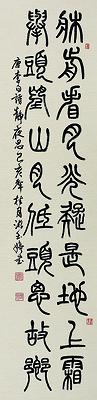 牀前看月光疑是地上霜
舉頭望山月低頭思故鄉
唐李白詩靜夜思己亥年桂月